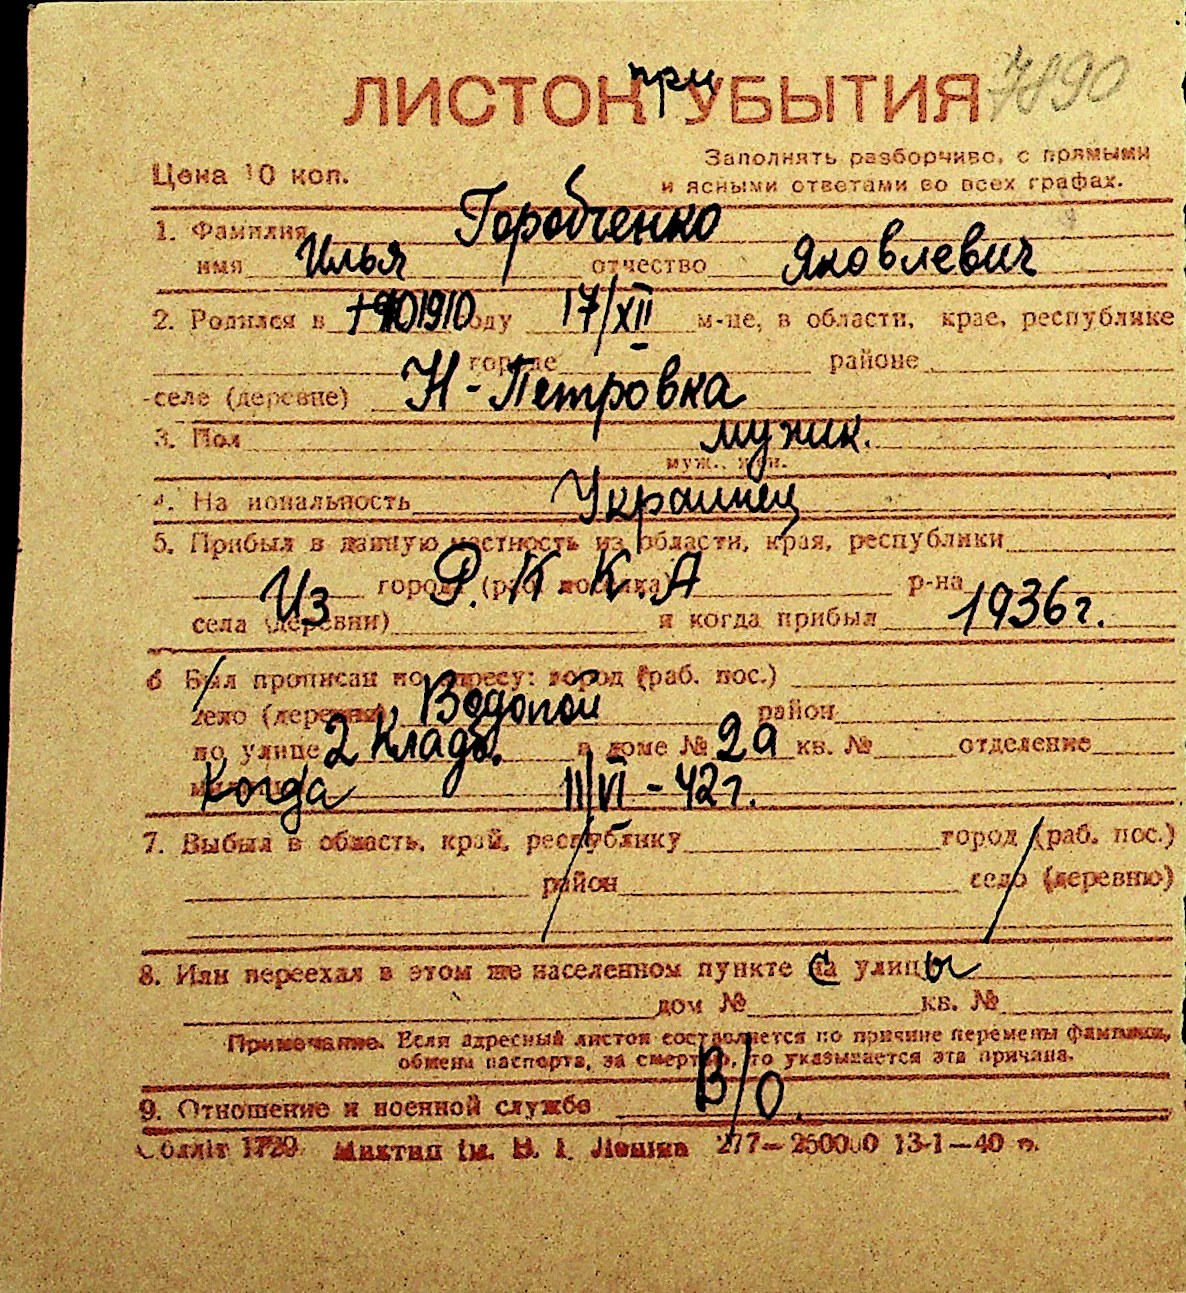 ЛИСТОК при УБЫТИЯ 7890
Цена 10 коп.
Заполнять разборчиво, с прямыми
и ясными ответами во всех графах.
1. Фамилия Горобченко
имя Илья отчество Яковлевич
2. Родился в 1910 году 17/XII м-це, в области, крае, республике
городе районе
селе (деревне) Н-Петровка
3. Пол мужик.
муж., жен.
4. Национальность Украинец
5. Прибыл в данную местность из области, края, республики
Из города (раб. поселка) Р.К.К.А р-на
села (деревни) и когда прибыл 1936 г.
6 Был прописан по адресу: город (раб. пос.)
село (деревня) Водопой район
по улице 2 Кладб. в доме № 29 кв. № отделение
Когда 11/VI - 42 г.
7. Выбыл в область, край, республику город (раб. пос.)
район село (деревню)
8. Или переехал в этом же населенном пункте с улицы
дом № кв. №
Примечание. Если адресный листок составляется по причине перемены фамилии,
обмена паспорта, за смертью, то указывается эта причина.
9. Отношение к военной службе В/О.
Обллiт 1729 Миктип iм. В. I. Ленiна 277—250000 13-1—40 р.